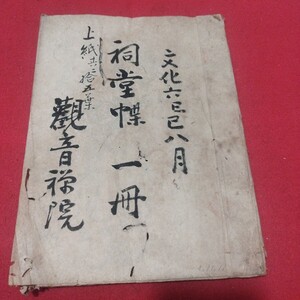 文化六己巳八月
祠堂牒 一冊
上紙共二拾五葉
觀音禅院